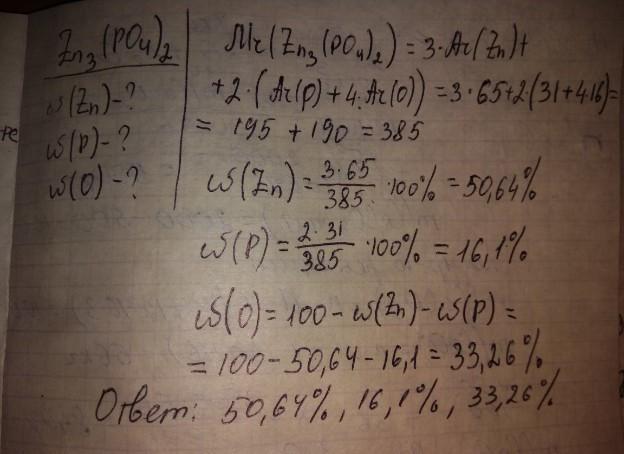 Zn₃(PO₄)₂
ω(Zn) - ?
ω(P) - ?
ω(O) - ?
Mr(Zn₃(PO₄)₂) = 3·Ar(Zn)+
+2·(Ar(P)+4·Ar(O)) = 3·65+2·(31+4·16)=
= 195 + 190 = 385
ω(Zn) = 3·65/385 · 100% = 50,64%
ω(P) = 2·31/385 · 100% = 16,1%
ω(O) = 100 - ω(Zn) - ω(P) =
= 100 - 50,64 - 16,1 = 33,26%
Ответ: 50,64%, 16,1%, 33,26%